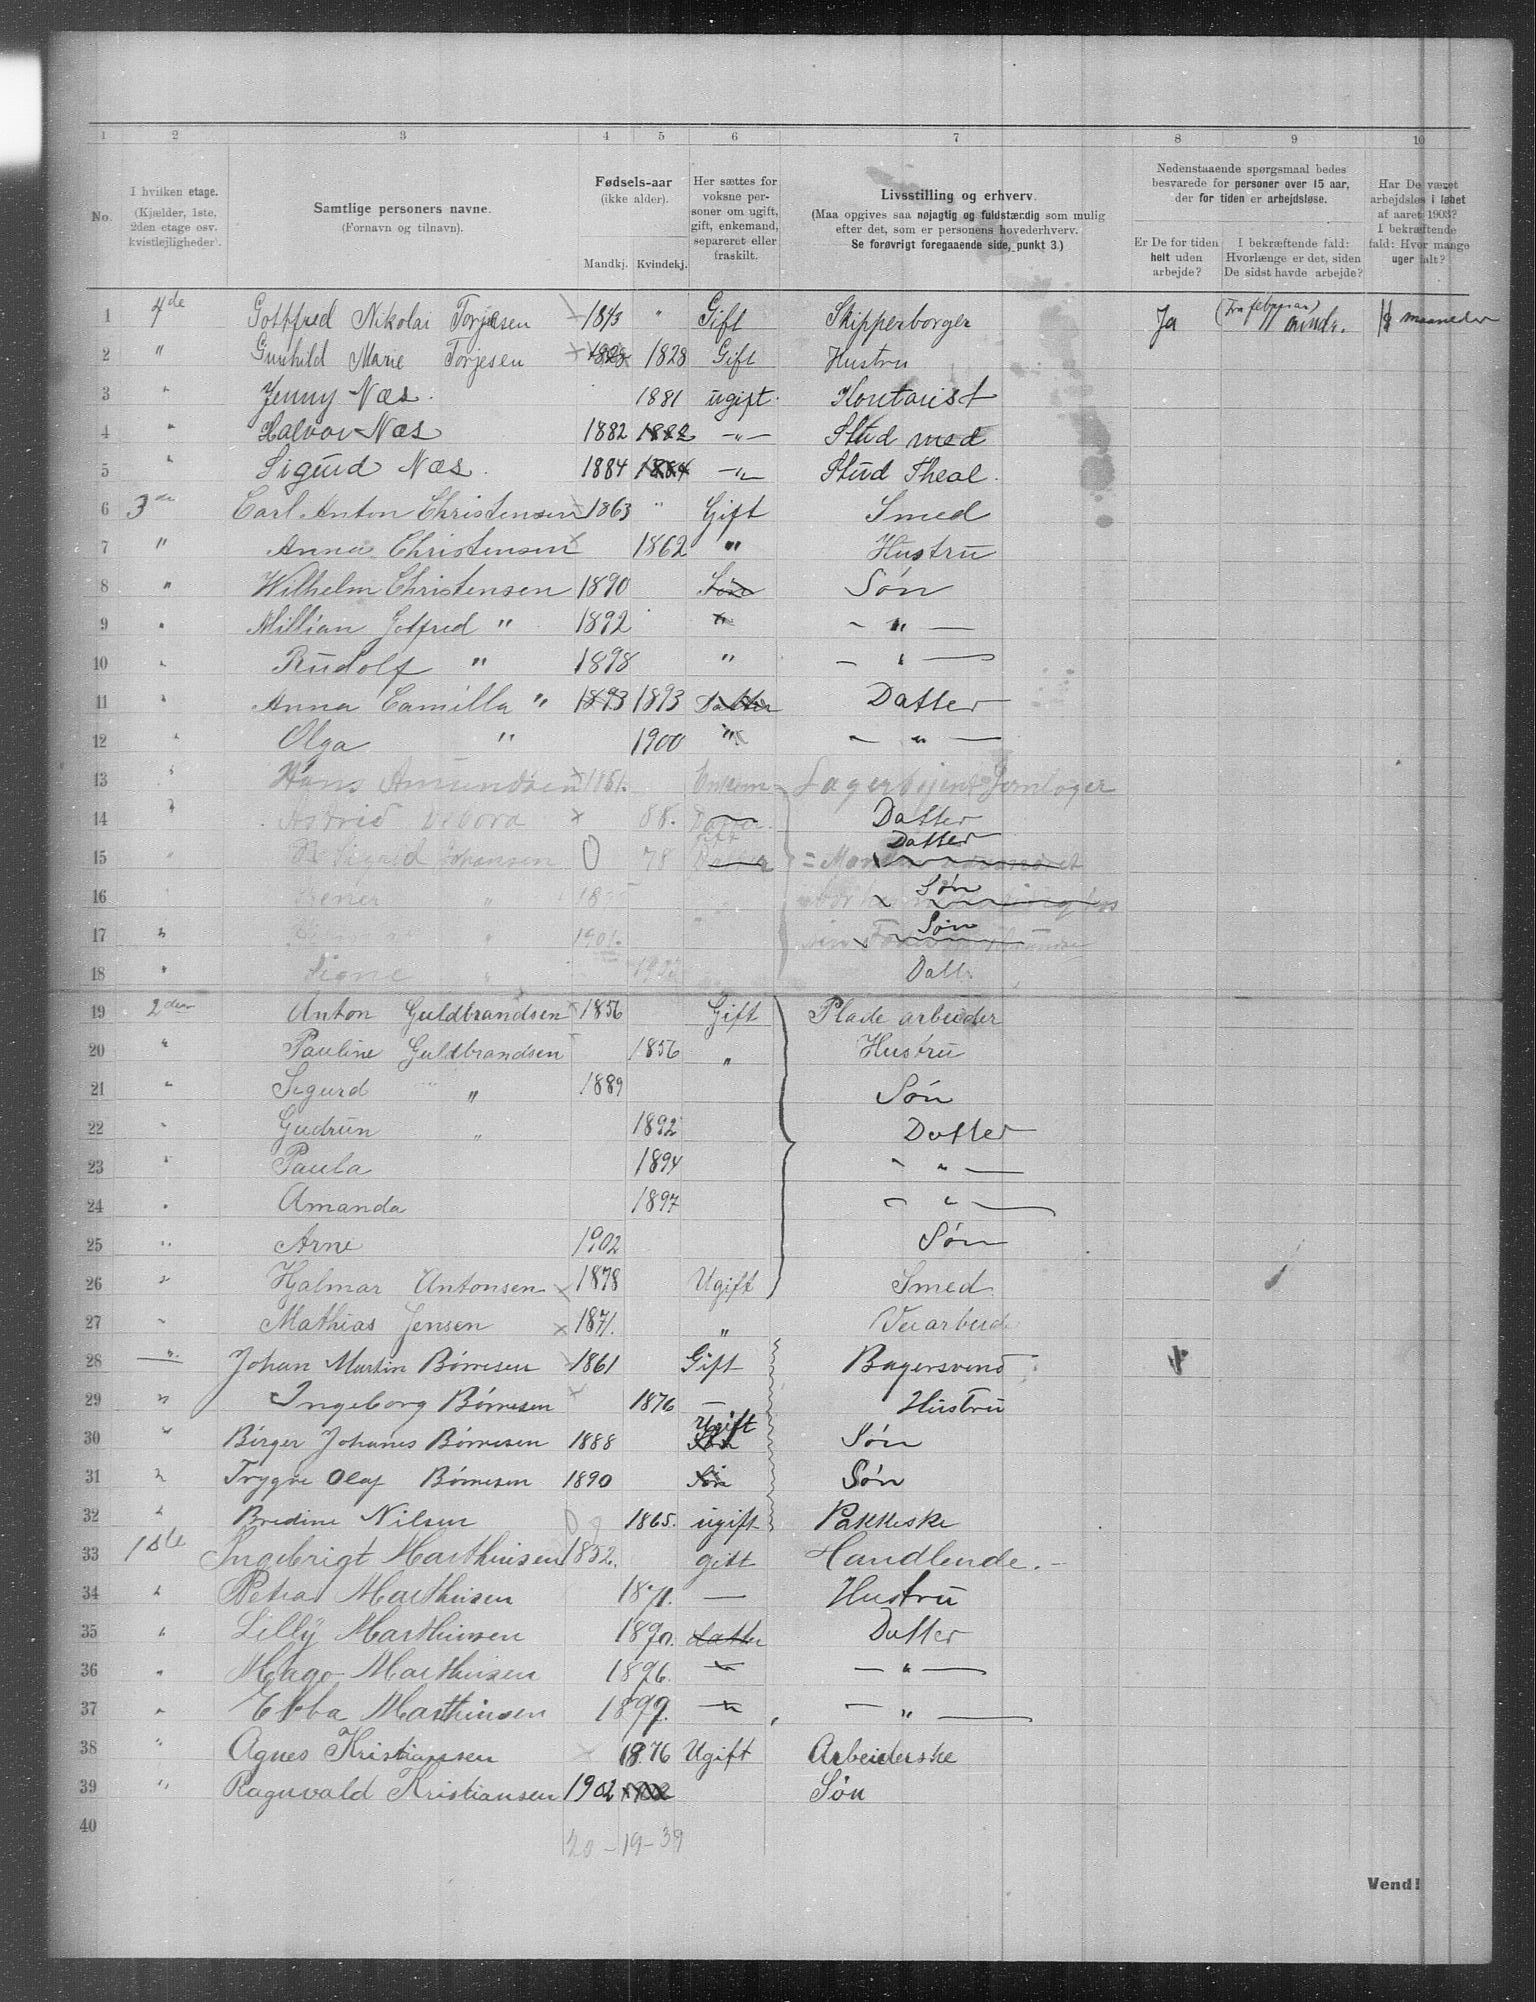 1 2 3 4 5 6 7 8 9 10
No.
I hvilken etage.
(Kjælder, 1ste,
2den etage osv.
kvistleiligheder).
Samtlige personers navne.
(Fornavn og tilnavn).
Fødsels-aar
(ikke alder).
Mandkj. Kvindekj.
Her sættes for
voksne per-
soner om ugift,
gift, enkemand,
separeret eller
fraskilt.
Livsstilling og erhverv.
(Maa opgives saa nøjagtig og fuldstændig som mulig
efter det, som er personens hovederhverv.
Se forøvrigt foregaaende side, punkt 3.)
Nedenstaaende spørgsmaal bedes
besvarede for personer over 15 aar,
der for tiden er arbejdsløse.
Er De for tiden
helt uden
arbejde?
I bekræftende fald:
Hvorlænge er det, siden
De sidst havde arbejde?
Har De været
arbejdsløs i løbet
af aaret 1903?
I bekræftende
fald: Hvor mange
uger ialt?
1 4de Gottfred Nikolai Torjesen 1843 " Gift Skipperborger Ja maaneder
2 " Gunhild Marie Torjesen 1828 1828 Gift Hustru
3 " Jenny Næs. 1881 ugift. Kontorist
4 " Halvor Næs 1882 1882 —"— Stud med
5 " Sigurd Næs. 1884 1884 —"— Stud Theol.
6 3de Carl Anton Christensen 1863 " Gift Smed
7 " Anna Christensen 1862 " Hustru
8 " Wilhelm Christensen 1890 Søn Søn
9 " Millian Gotfred " 1892 " — " —
10 " Rudolf " 1898 " — " —
11 " Anna Camilla " 1893 1893 Datter Datter
12 " Olga " 1900 " — " —
13 " Hans Amundsen 1851. Enkem Jernlager
14 " Astrid Debora 88. Datter. Datter
15 " Sigrid Johansen 78 Datter Datter
16 " " Søn
17 " " 1901. Søn
18 " Signe " Datt.
19 2den Anton Guldbrandsen 1856 Gift Plade arbeider
20 " Pauline Guldbrandsen 1856 " Hustru
21 " Sigurd " 1889 Søn
22 " Gudrun " 1892 Datter
23 " Paula 1894 — " —
24 " Amanda 1897 — " —
25 " Arne 1902 Søn
26 " Halmar Antonsen 1878 Ugift Smed
27 " Mathias Jensen 1871. " Veiarbeid
28 " Johan Martin Børresen 1861 Gift Bagersvend
29 " Ingeborg Børresen 1876 — Hustru
30 " Birger Johanes Børresen 1888 Ugift Søn Søn
31 " Trygve Olaf Børresen 1890 Søn Søn
32 " Bredine Nilsen 1865. ugift Pakkeske
33 1ste Ingebrigt Marthinsen 1852. gift Handlende.—
34 " Petra Marthinsen 1871. — Hustru
35 " Lilly Marthinsen 1890. datter Datter
36 " Marthinsen 1896. " — " —
37 " Ebba Marthinsen 1899. " — " —
38 " Agnes Kristiansen 1876 Ugift Arbeiderske
39 " Ragnvald Kristiansen 1902 1902 Søn
40
20 – 19 – 39
Vend!